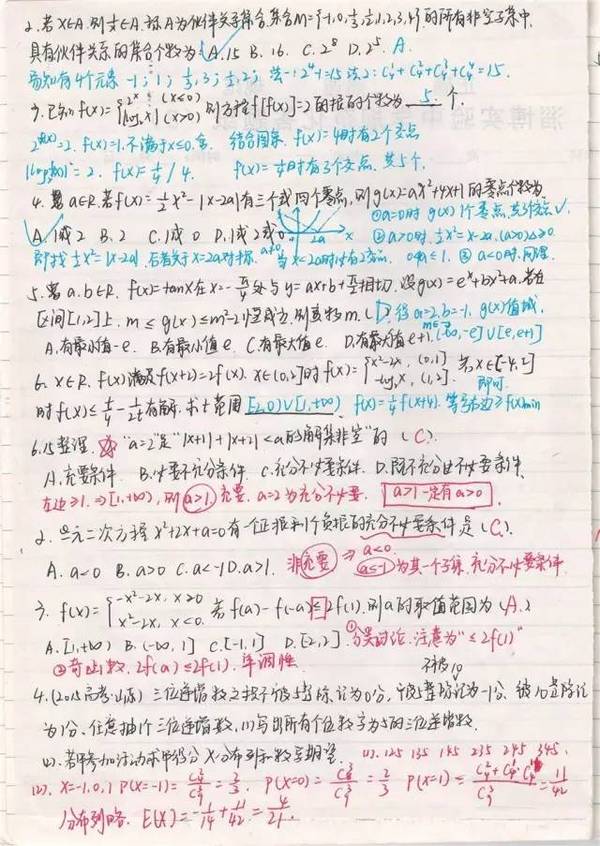 2. 若x∈A, 则1/x∈A, 称A为伙伴关系集合, 集合M={-1,0,1/3,1/2,1,2,3,4}的所有非空子集中,
具有伙伴关系的集合个数为 A.15 B.16 C.2⁸ D.2⁵. A.
易知有4个元素 -1; 1; 1/3,3; 1/2,2; 法一: 2⁴-1=15 法2: C₄¹+C₄²+C₄³+C₄⁴=15.
3. 已知f(x)={2ˣ (x≤0) |log₂x| (x>0) 则方程f[f(x)]=2的根的个数为 5 个.
=2, f(x)=1. 不满足x≤0, 舍. 结合图象, f(x)=4时有2个交点
=2. f(x)=1/4 / 4. f(x)=1/4时有3个交点. 共5个.
4. a∈R. 若f(x)=1/2x²-|x-2a|有三个或四个零点, 则g(x)=ax²+4x+1的零点个数为
①a=0时 g(x) 1个零点,
A.1或2 B.2 C.1或0 D.1或2或0 2a x ②a>0时, 1/2x²=x-2a,
即找1/2x²=|x-2a|, 后者关于x=2a对称. ③a<0时, 同理.
5. 若a.b∈R. f(x)=tanx在x=-π/4处与y=ax+b+π/2相切, 设g(x)=eˣ+bx²+a. 若在
区间[1,2]上, m≤g(x)≤m²-2恒成立, 则实数m. ( D ) 得a=2, b=-1. g(x)值域,
A.有最小值-e. B.有最小值e C.有最大值e D.有最大值e+1. m∈(-∞,-e]∪[e,e+1]
6. x∈R. f(x)满足f(x+2)=2f(x). x∈(0,2]时f(x)={x²-2x, (0,1] -log₂x, (1,2]. 若x∈[-4,2]
时f(x)≤t/4-1/2t有解, 求t范围 [-2,0)∪[1,+∞) f(x)=1/4f(x+4). 等号右边≥f(x)min 即可.
6.15整理. "a=2"是"|x+1|+|x+2|<a的解集非空"的 ( C )
A.充要条件 B.必要不充分条件 C.充分不必要条件. D.既不充分也不必要条件.
左边≥1. ⇒[1,+∞), 则a>1充要. a=2为充分不必要. a>1一定有a>0
2. 一元二次方程x²+2x+a=0有一正根和1个负根的充分不必要条件是 ( C )
A. a<0 B. a>0 C. a<-1 D. a>1. 非充要 ⇒ a<0 a≤-1为其一个子集. 充分不必要条件
3. f(x)={-x²-2x, x≥0 x²-2x, x<0. 若f(a)-f(-a)≤2f(1), 则a的取值范围为 (A.)
A.[1,+∞) B.(-∞,1] C.[-1,1] D.[-2,2] ①分类讨论. 注意为"≤2f(1)"
②奇函数. 2f(a)≤2f(1). 单调性
不被10
4.(2015高考·山东) 三位递增数之积不被5整除, 记为0分, 被5整除记为-1分, 被10整除记
为1分. 任意抽1个三位递增数, (1)写出所有个位数字为5的三位递增数.
(2). 若甲参加活动求甲得分X分布列和数学期望. (1). 125 135 145 235 245 345.
(2). X=-1.0.1 P(X=-1)= P(X=0)=C₈³/C₉³=2/3 P(X=1)= =11/42
分布列略. E(X)=-1/14+11/42=4/21.